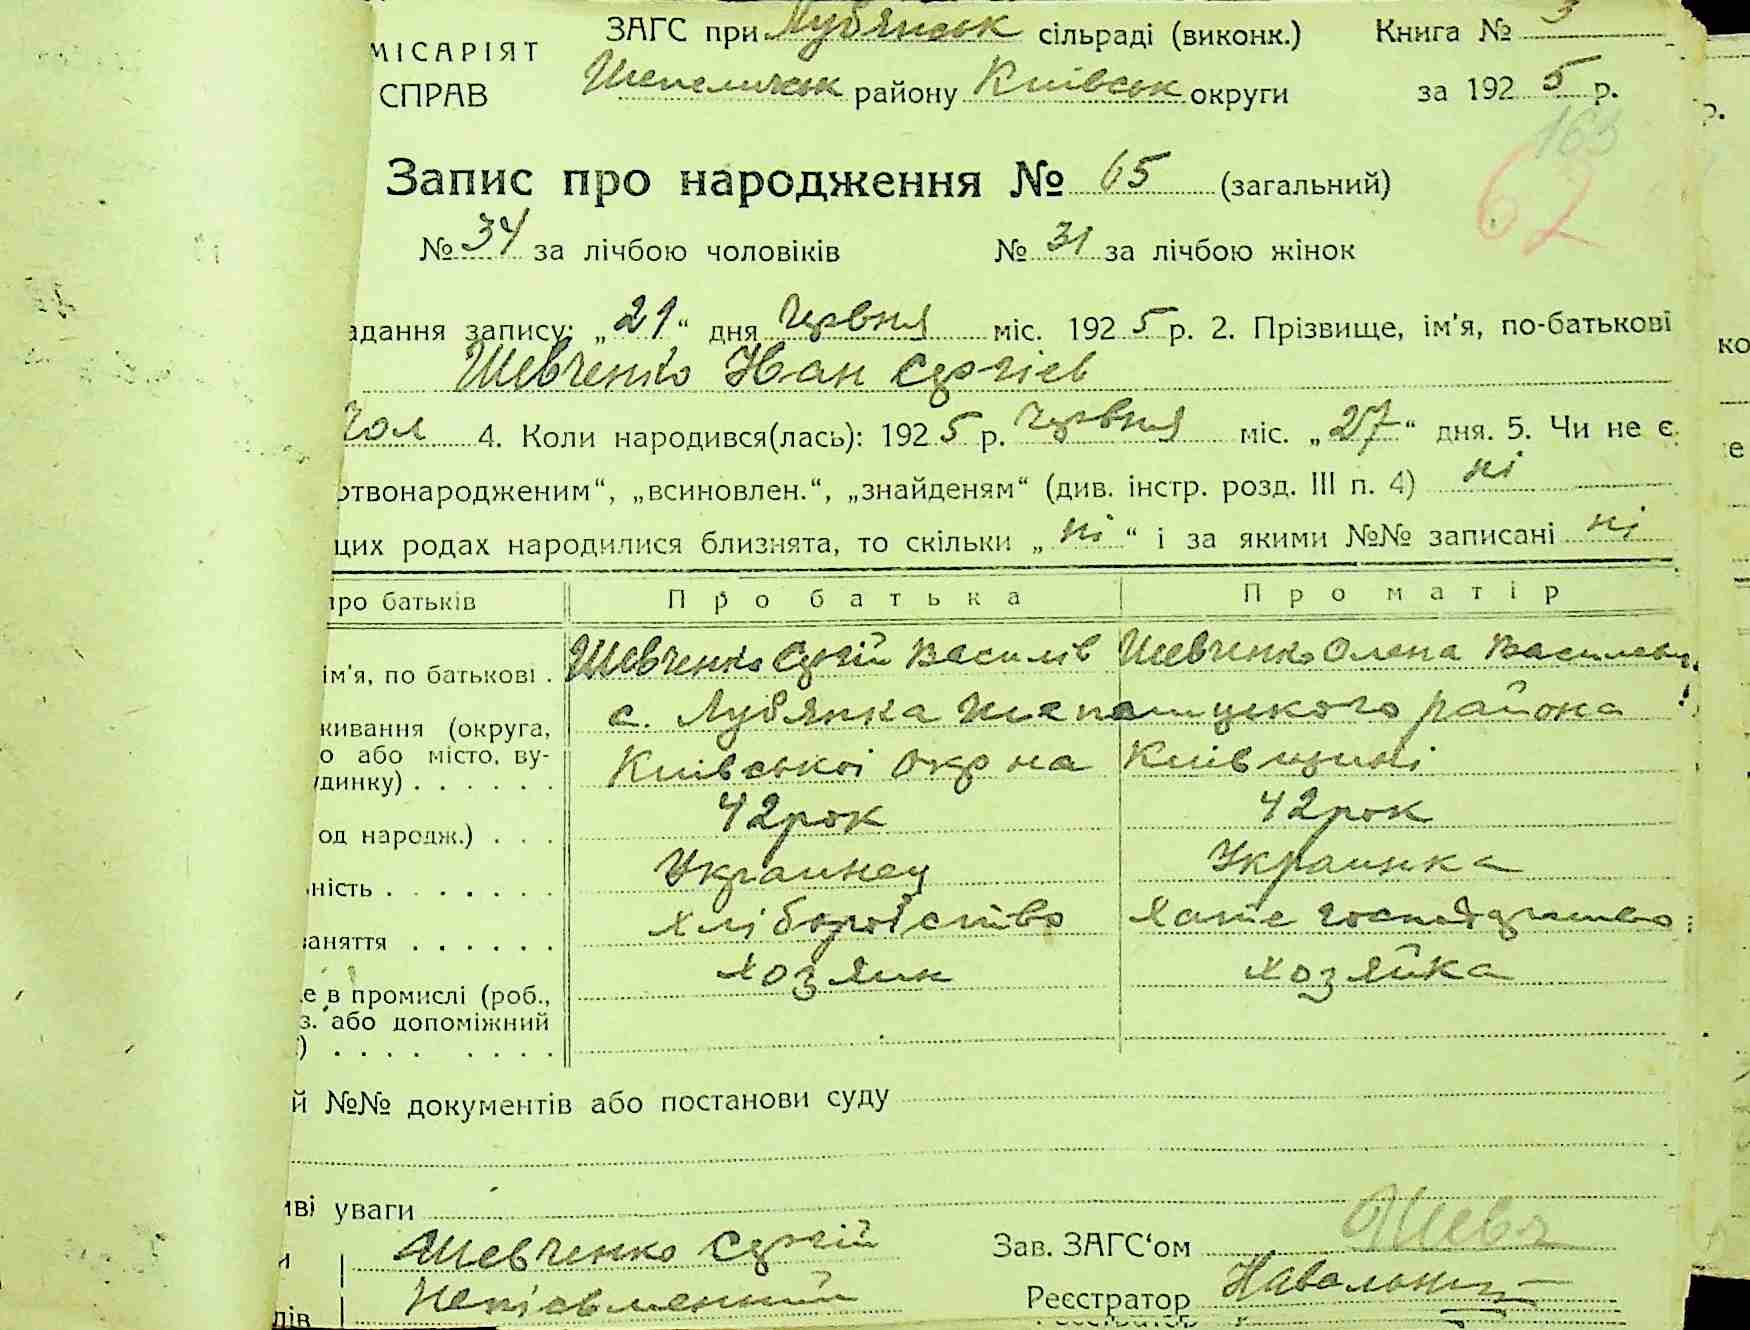 ЗАГС при Лубянськ сільраді (виконк.) Книга № 3
МІСАРІЯТ
СПРАВ Шепелицьк району Київськ округи за 1925 р.
163
62
Запис про народження № 65 (загальний)
№ 34 за лічбою чоловіків № 31 за лічбою жінок
адання запису: „21“ дня Червня міс. 1925 р. 2. Прізвище, ім'я, по-батькові
Шевченко Іван Сергіев
Чол 4. Коли народився(лась): 1925 р. Червня міс. „27“ дня. 5. Чи не є
ртвонародженим“, „всиновлен.“, „знайденям“ (див. інстр. розд. III п. 4) ні
цих родах народилися близнята, то скільки „ні“ і за якими №№ записані ні
про батьків Про батька Про матір
ім'я, по батькові . Шевченко Сергій Василів Шевченко Олена Василевн
кивання (округа, с. Лубянка Шепелицького района
о або місто, ву-
удинку) . . . . . . Київської Окр на Київщині
од народж.) . . . 42 рок 42 рок
ність . . . . . . . Украинец Украинка
заняття . . . . . . хліборобство Хатне господарство
е в промислі (роб., хозяин хозяйка
з. або допоміжний
) . . . . . . . .
й №№ документів або постанови суду
иві уваги
Шевченко Сергій Зав. ЗАГС‘ом Шевч
Неписьменний Реєстратор